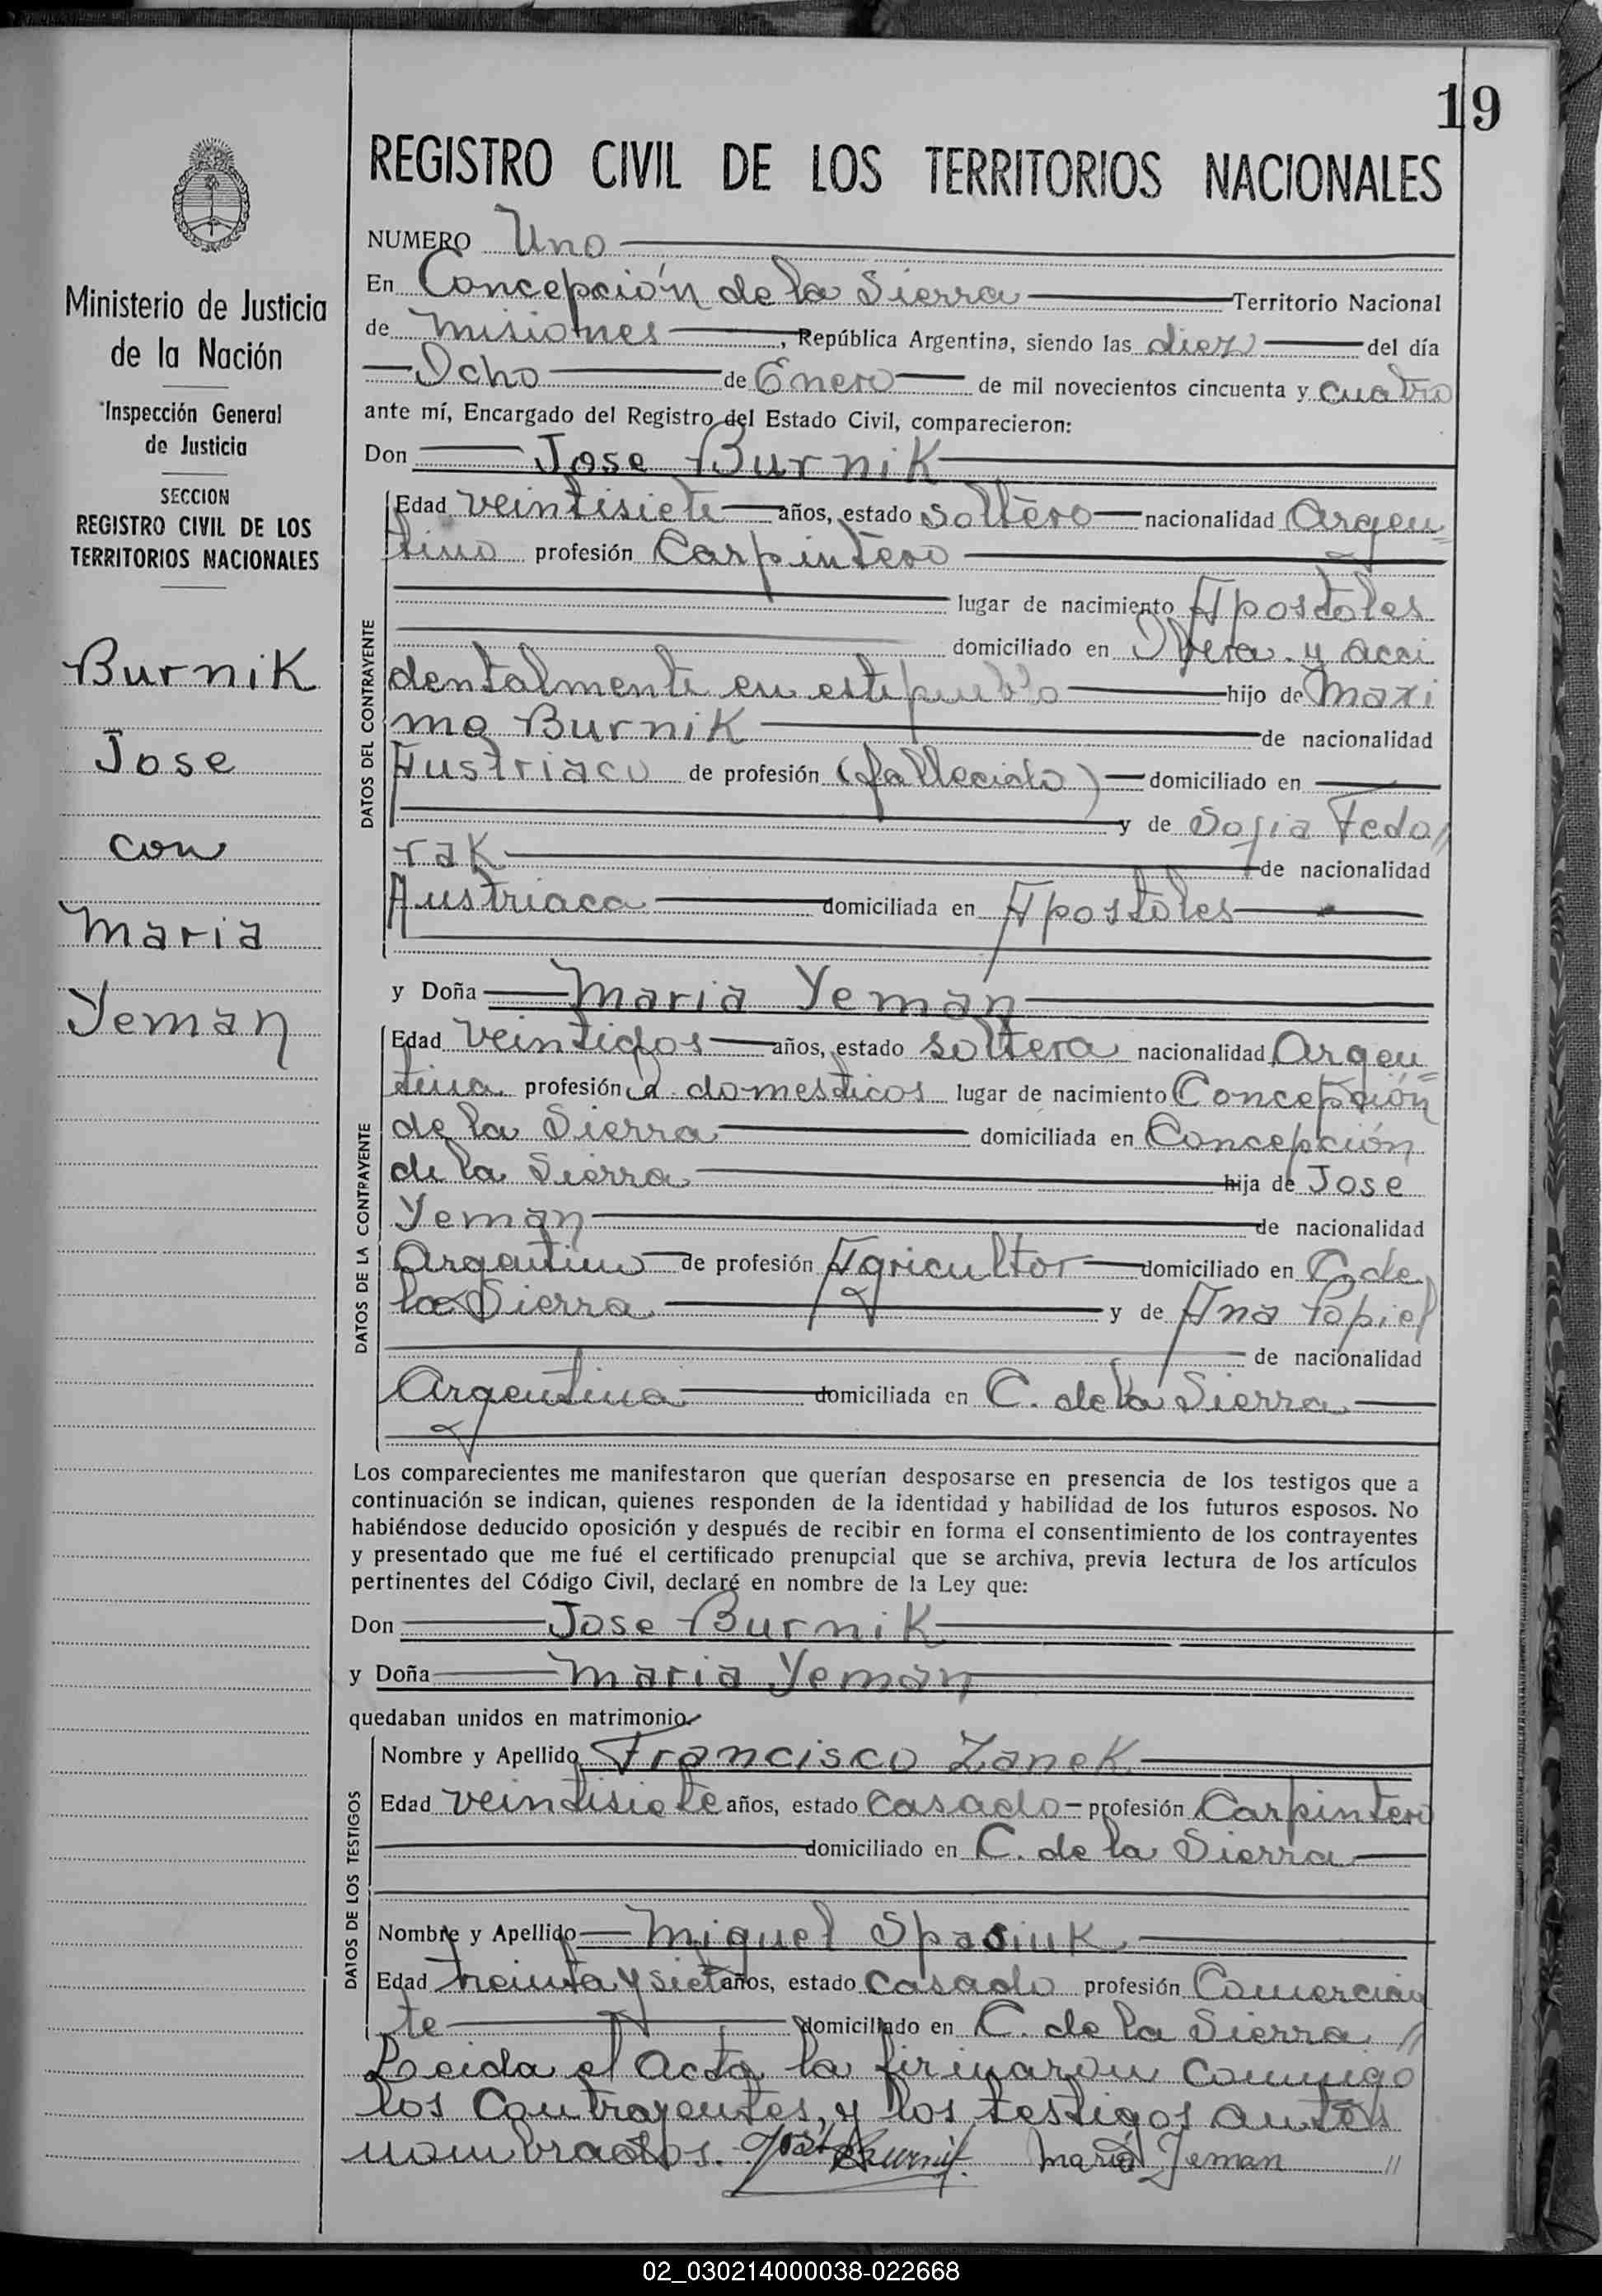 19
REGISTRO CIVIL DE LOS TERRITORIOS NACIONALES
Ministerio de Justicia
de la Nación
Inspección General
de Justicia
SECCION
REGISTRO CIVIL DE LOS
TERRITORIOS NACIONALES
Burnik
Jose
con
Maria
Yeman
NUMERO Uno
En Concepción de la Sierra Territorio Nacional
de Misiones, República Argentina, siendo las diez del día
Ocho de Enero de mil novecientos cincuenta y cuatro
ante mí, Encargado del Registro del Estado Civil, comparecieron:
Don Jose Burnik
DATOS DEL CONTRAYENTE
Edad veintisiete años, estado soltero nacionalidad Argen=
tino profesión Carpintero
lugar de nacimiento Apostoles
domiciliado en Obera y acci
dentalmente en este pueblo hijo de Maxi
mo Burnik de nacionalidad
Austriaco de profesión (fallecido) domiciliado en
y de Sofia Fedo//
rak de nacionalidad
Austriaca domiciliada en Apostoles
y Doña Maria Yeman
DATOS DE LA CONTRAYENTE
Edad veintidos años, estado soltera nacionalidad Argen=
tina profesión Q. domesticos lugar de nacimiento Concepción
de la Sierra domiciliada en Concepción
de la Sierra hija de Jose
Yeman de nacionalidad
Argentino de profesión Agricultor domiciliado en C. de
la Sierra y de Ana Popiel
de nacionalidad
Argentina domiciliada en C. de la Sierra
Los comparecientes me manifestaron que querían desposarse en presencia de los testigos que a
continuación se indican, quienes responden de la identidad y habilidad de los futuros esposos. No
habiéndose deducido oposición y después de recibir en forma el consentimiento de los contrayentes
y presentado que me fué el certificado prenupcial que se archiva, previa lectura de los artículos
pertinentes del Código Civil, declaré en nombre de la Ley que:
Don Jose Burnik
y Doña Maria Yeman
quedaban unidos en matrimonio.
DATOS DE LOS TESTIGOS
Nombre y Apellido Francisco Zanek
Edad veintisiete años, estado casado profesión Carpintero
domiciliado en C. de la Sierra
Nombre y Apellido Miguel Spasiuk
Edad treinta y siete años, estado casado profesión Comercian
te domiciliado en C. de la Sierra //
Leida el Acta la firmaron conmigo
los Contrayentes, y los testigos antes
nombrados. José Burnik. Maria Yeman //
02_030214000038-022668